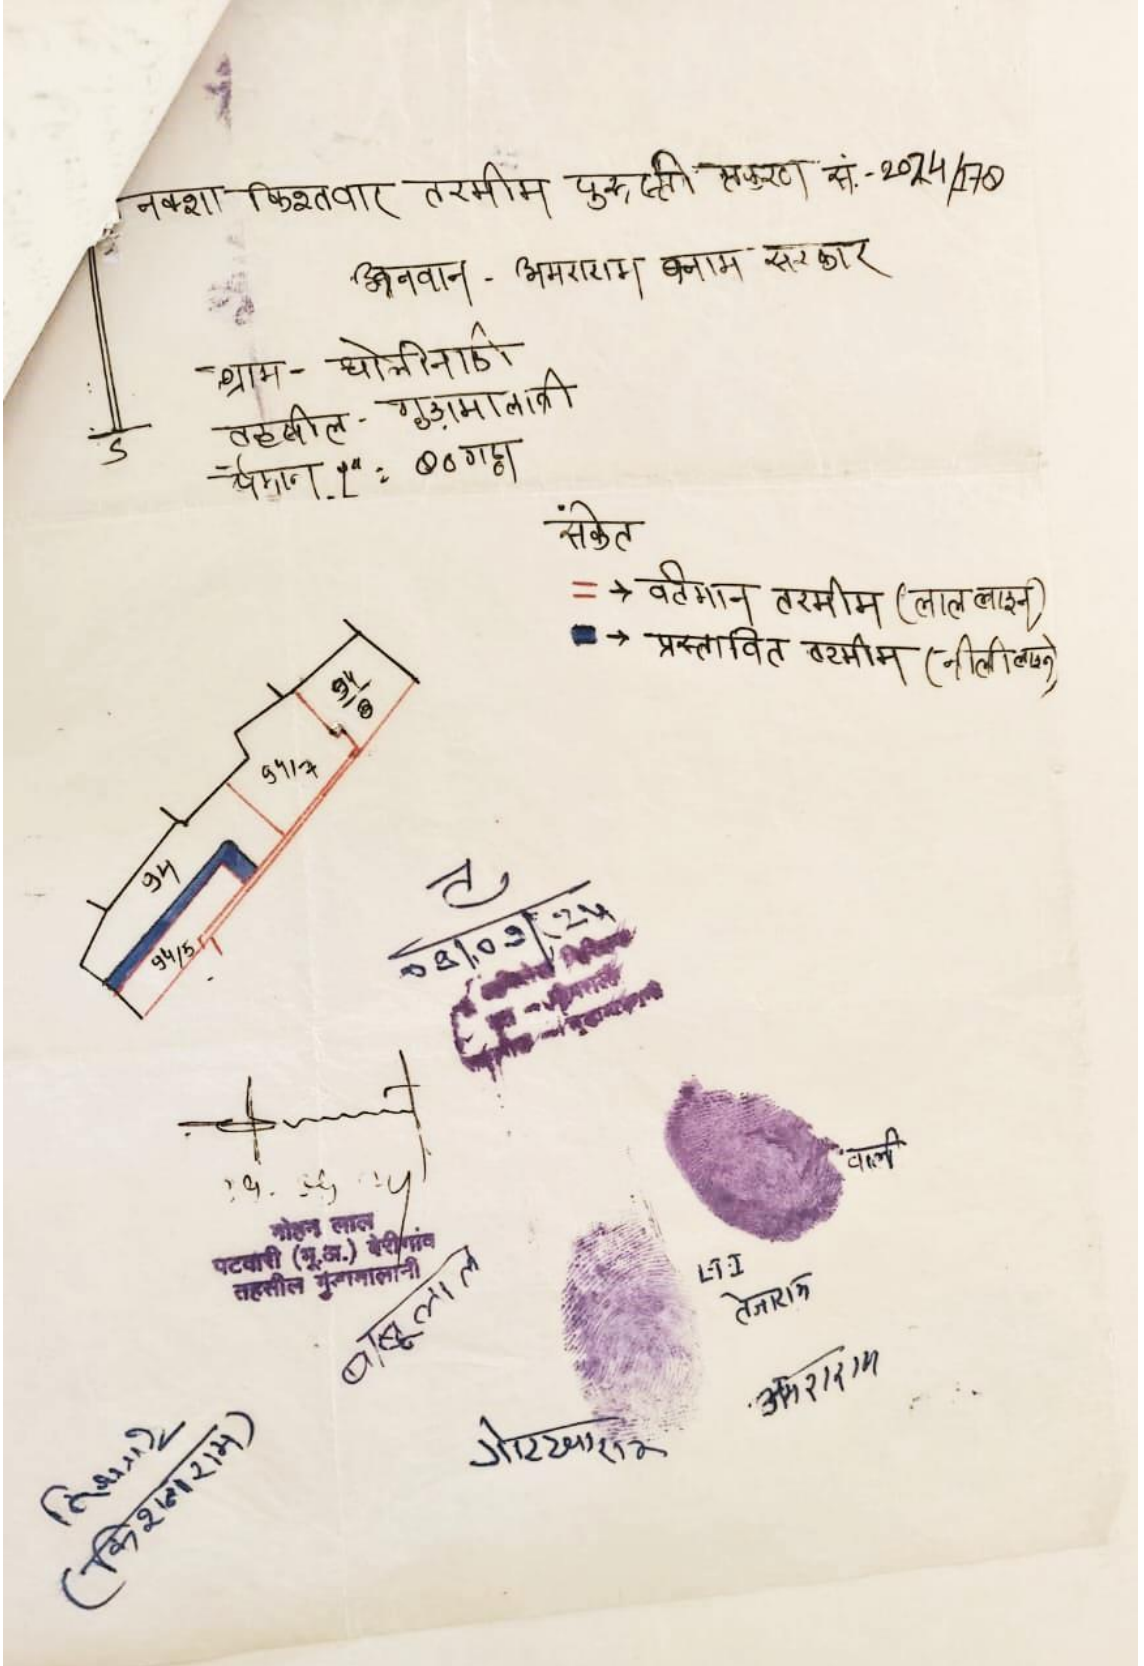 नक्शा किश्तवार तरमीम दुरुस्ती प्रकरण सं.-2024/170
अनवान - अमराराम बनाम सरकार
ग्राम - धोलीनाडी
तहसील - गुड़ामालानी
पैमान 1" = 80 गट्ठा
S
संकेत
= → वर्तमान तरमीम (लाल लाइन)
→ प्रस्तावित तरमीम (नीली लाइन)
94/8
94/7
94
94/5
वाली
मोहन लाल
पटवारी (भू.अ.) बेरीगांव
तहसील गुड़ामालानी
बाबूलाल
LTI
तेजाराम
अमराराम
गोरखाराम
(किशनाराम)